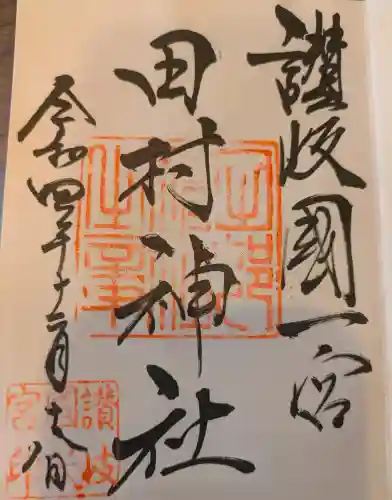 讃岐國一宮
田村神社
令和四年十二月十八日
讃岐
國一
宮印